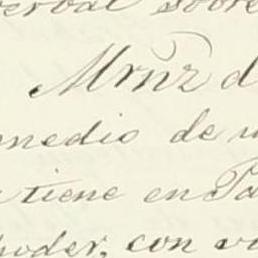 verbal sobre
Mrnz d
medio de u
tiene en Pa
poder, con vi